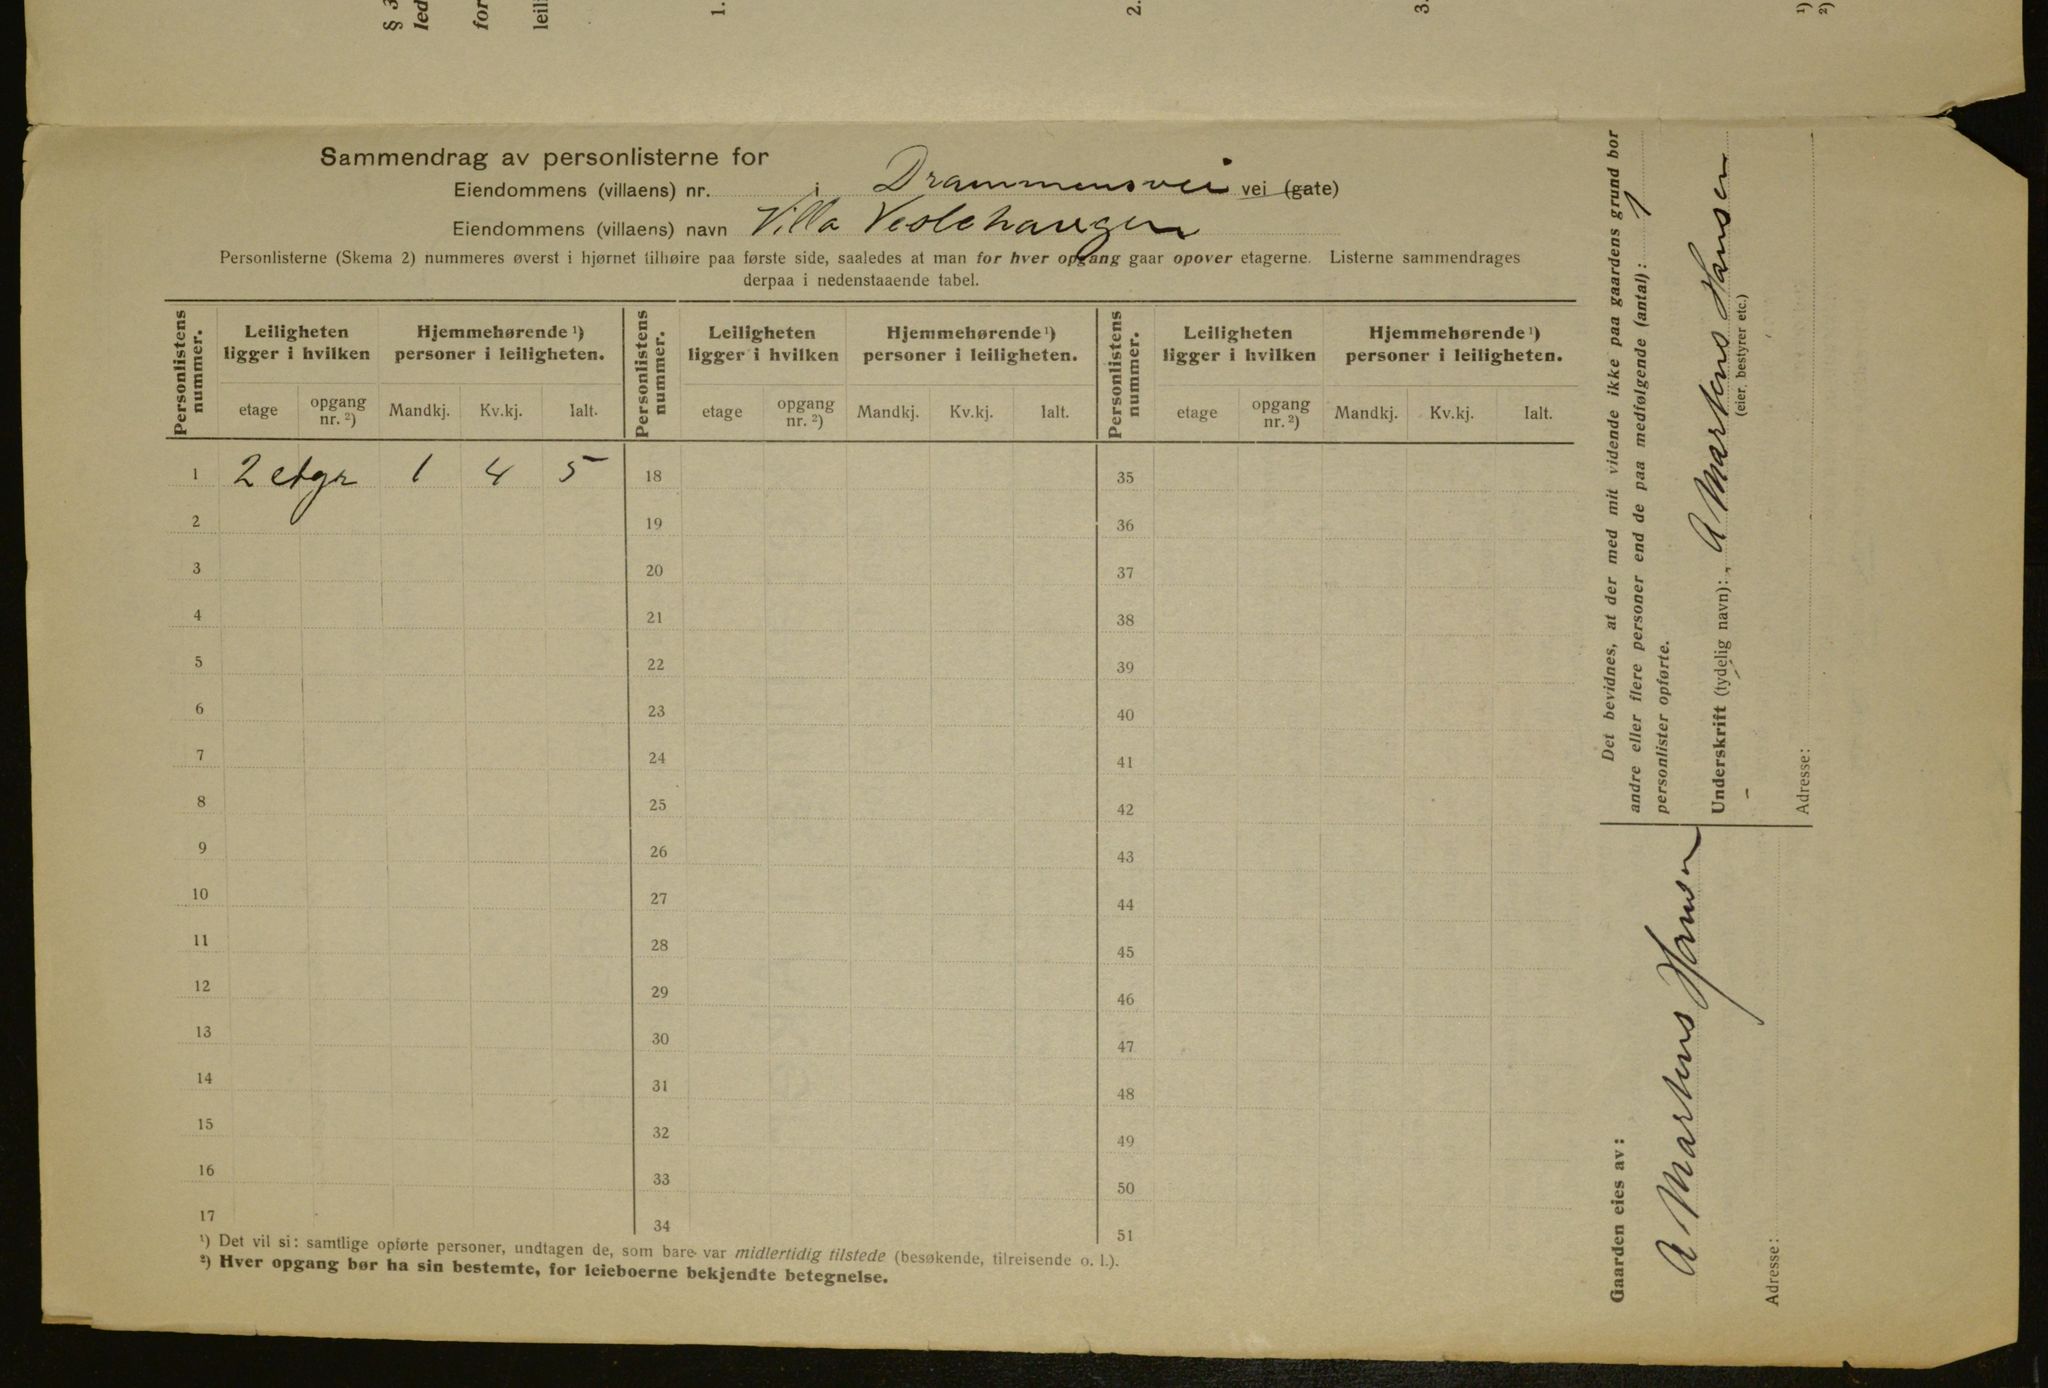 § 3
led
for
leil
1.
2.
3.
1)
2)
Sammendrag av personlisterne for
Eiendommens (villaens) nr. i Drammensvei vei (gate)
Eiendommens (villaens) navn Villa Veslehaugen
Personlisterne (Skema 2) nummeres øverst i hjørnet tilhøire paa første side, saaledes at man for hver opgang gaar opover etagerne. Listerne sammendrages
derpaa i nedenstaaende tabel.
Personlistens nummer. Leiligheten ligger i hvilken Hjemmehørende 1) personer i leiligheten. Personlistens nummer. Leiligheten ligger i hvilken Hjemmehørende 1) personer i leiligheten. Personlistens nummer. Leiligheten ligger i hvilken Hjemmehørende 1) personer i leiligheten.
etage opgang nr. 2) Mandkj. Kv.kj. Ialt. etage opgang nr. 2) Mandkj. Kv.kj. Ialt. etage opgang nr. 2) Mandkj. Kv.kj. Ialt.
1 2 etgr 1 4 5 18 35
2 19 36
3 20 37
4 21 38
5 22 39
6 23 40
7 24 41
8 25 42
9 26 43
10 27 44
11 28 45
12 29 46
13 30 47
14 31 48
15 32 49
16 33 50
17 34 51
1) Det vil si: samtlige opførte personer, undtagen de, som bare var midlertidig tilstede (besøkende, tilreisende o. l.).
2) Hver opgang bør ha sin bestemte, for leieboerne bekjendte betegnelse.
Det bevidnes, at der med mit vidende ikke paa gaardens grund bor
andre eller flere personer end de paa medfølgende (antal): 1
personlister opførte.
Underskrift (tydelig navn): A Martens Hansen
(eier, bestyrer etc.)
Adresse:
Gaarden eies av:
A Martens Hansen
Adresse: